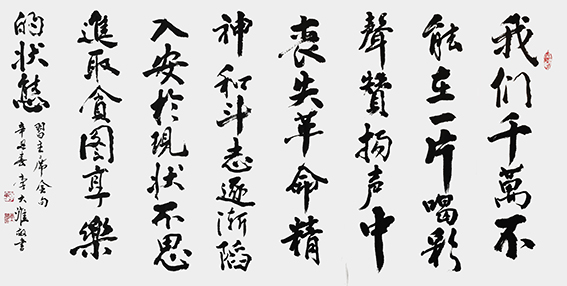 我们千萬不
能在一片喝彩
聲贊扬声中
喪失革命精
神和斗志逐漸陷
入安於現状不思
進取貪图享樂
的状態
習主席金句
辛丑春李大